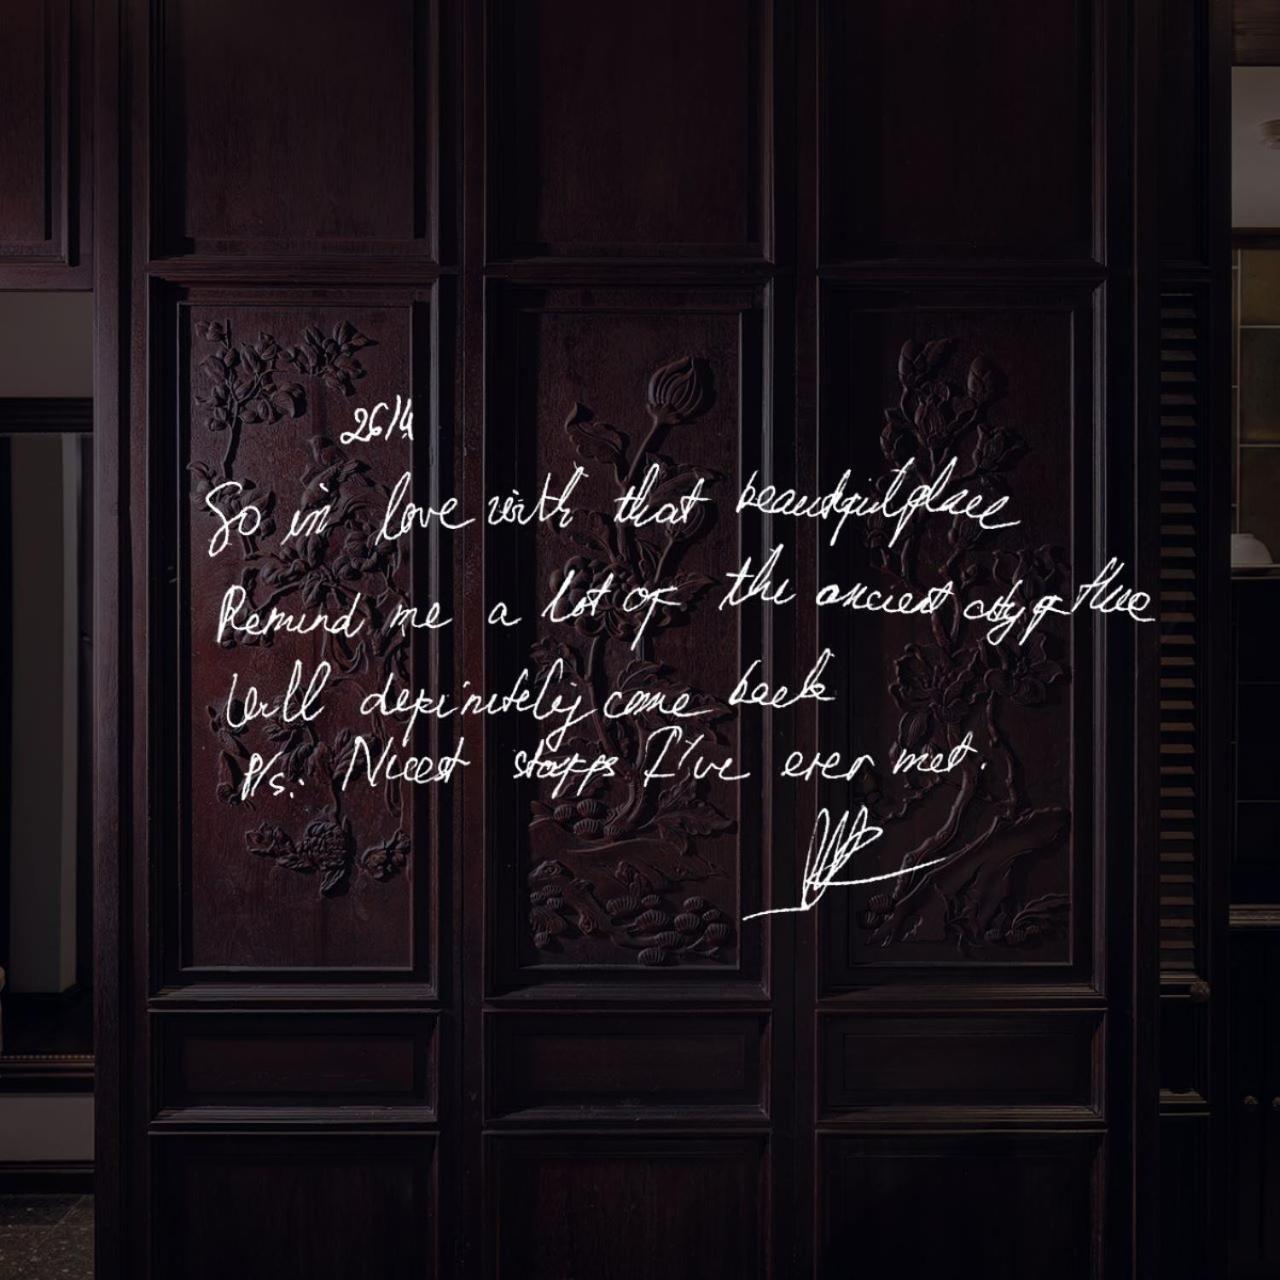 26/4
So in love with that beautiful place
Remind me a lot of the ancient city of Hue
Will definitely come back
P/s: Nicest staffs I've ever met.